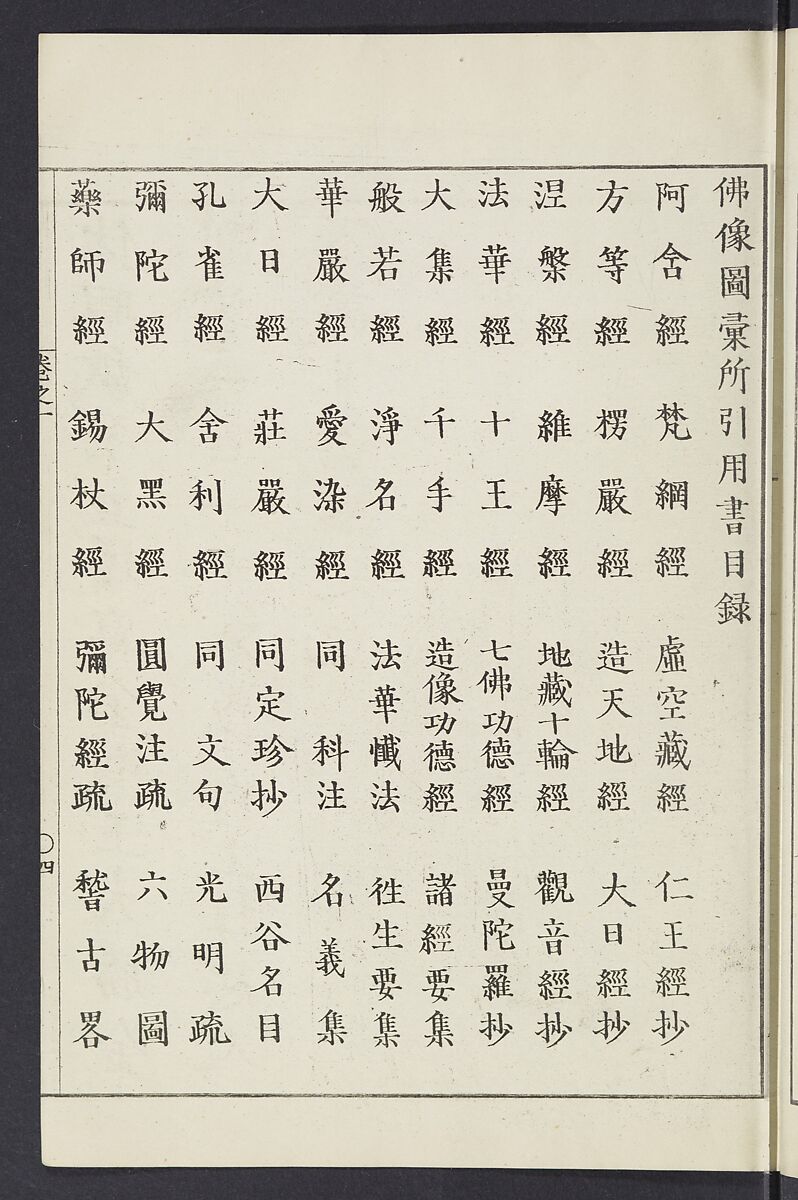 佛像圖彙所引用書目録
阿含經 梵網經 虛空藏經 仁王經抄
方等經 楞嚴經 造天地經 大日經抄
涅槃經 維摩經 地藏十輪經 觀音經抄
法華經 十王經 七佛功德經 曼陀羅抄
大集經 千手經 造像功德經 諸經要集
般若經 淨名經 法華懺法 徃生要集
華嚴經 愛染經 同科注 名義集
大日經 莊嚴經 同定珍抄 西谷名目
孔雀經 舍利經 同文句 光明疏
彌陀經 大黑經 圓覺注疏 六物圖
藥師經 錫杖經 彌陀經疏 稽古畧
卷之一 〇四